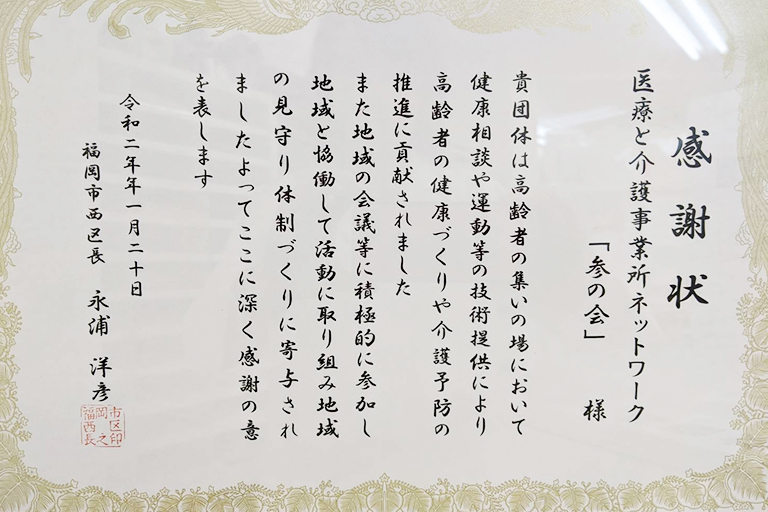 感謝状
医療と介護事業所ネットワーク
「参の会」 様
貴団体は高齢者の集いの場において
健康相談や運動等の技術提供により
高齢者の健康づくりや介護予防の
推進に貢献されました
また地域の会議等に積極的に参加し
地域と協働して活動に取り組み地域
の見守り体制づくりに寄与され
ましたよってここに深く感謝の意
を表します
令和二年年一月二十日
福岡市西区長 永浦 洋彦
福岡市
西区
長之印